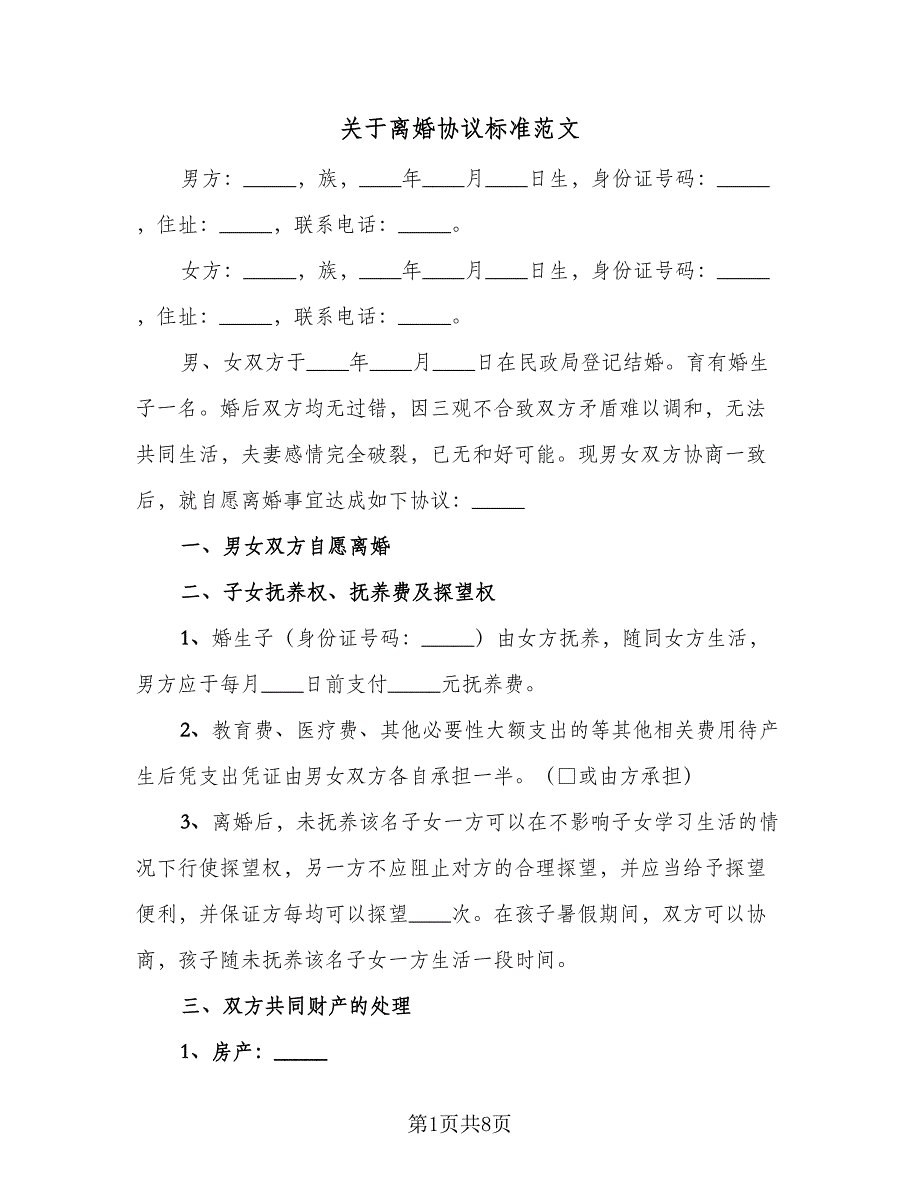 关于离婚协议标准范文
男方：_____，族，____年____月____日生，身份证号码：_____
，住址：_____，联系电话：_____。
女方：_____，族，____年____月____日生，身份证号码：_____
，住址：_____，联系电话：_____。
男、女双方于____年____月____日在民政局登记结婚。育有婚生
子一名。婚后双方均无过错，因三观不合致双方矛盾难以调和，无法
共同生活，夫妻感情完全破裂，已无和好可能。现男女双方协商一致
后，就自愿离婚事宜达成如下协议：_____
一、男女双方自愿离婚
二、子女抚养权、抚养费及探望权
1、婚生子（身份证号码：_____）由女方抚养，随同女方生活，
男方应于每月____日前支付_____元抚养费。
2、教育费、医疗费、其他必要性大额支出的等其他相关费用待产
生后凭支出凭证由男女双方各自承担一半。（□或由方承担）
3、离婚后，未抚养该名子女一方可以在不影响子女学习生活的情
况下行使探望权，另一方不应阻止对方的合理探望，并应当给予探望
便利，并保证方每均可以探望____次。在孩子暑假期间，双方可以协
商，孩子随未抚养该名子女一方生活一段时间。
三、双方共同财产的处理
1、房产：_____
第1页共8页